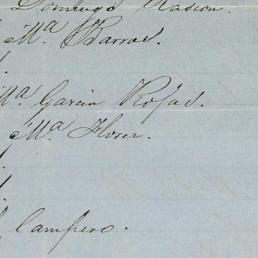 Domingo Rascon.
Mª Barras.
Mª Garcia Rojas.
Mª Flores.
Campero.